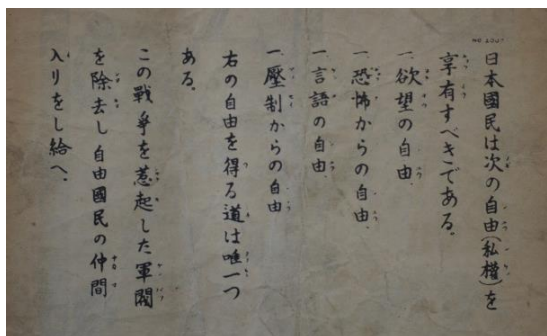 日本國民は次の自由(私權)を
享有すべきである。
一、欲望の自由、
一 恐怖からの自由、
一 言語の自由、
一、壓制からの自由
右の自由を得る道は唯一つ
ある。
この戰爭を惹起した軍閥
を除去し自由國民の仲間
入りをし給へ。